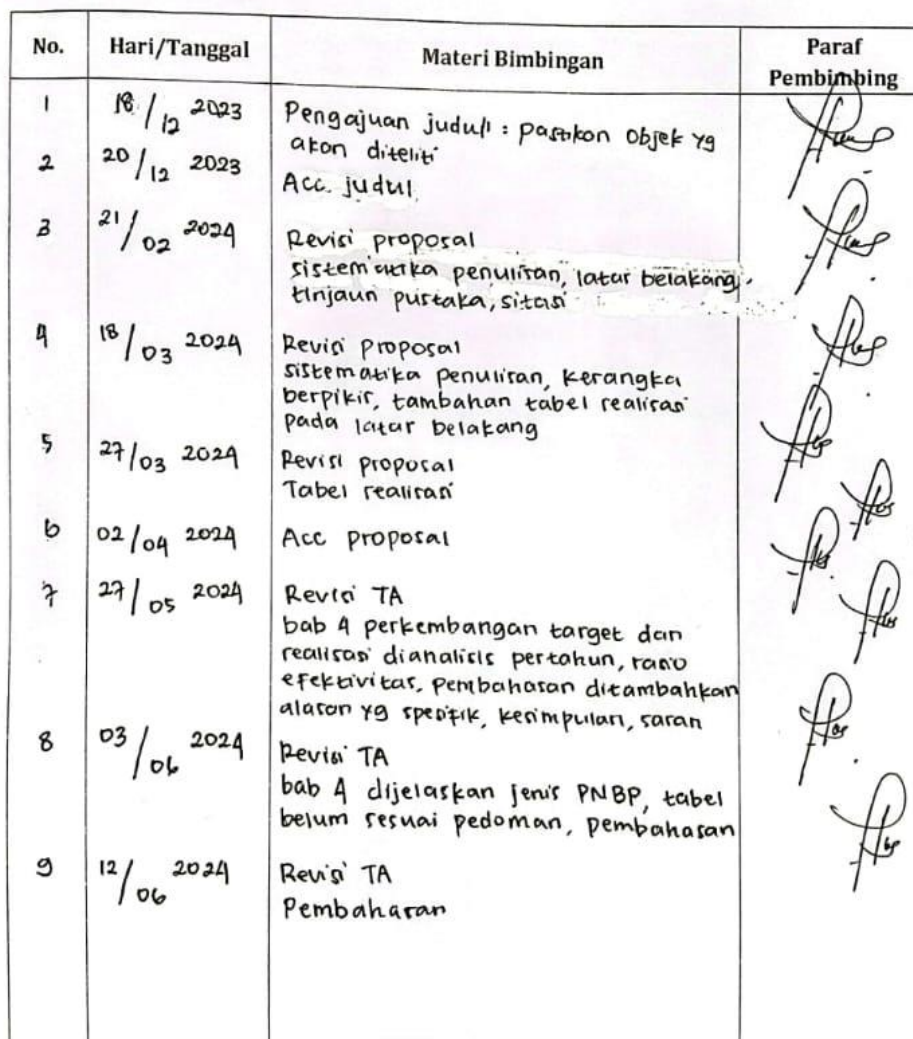 No. Hari/Tanggal Materi Bimbingan Paraf Pembimbing
1 18/12 2023 Pengajuan judul : pastikan objek yg
akan diteliti
2 20/12 2023 Acc judul
3 21/02 2024 Revisi proposal
sistematika penulisan, latar belakang,
tinjaun pustaka, sitasi
4 18/03 2024 Revisi proposal
sistematika penulisan, kerangka
berpikir, tambahan tabel realisasi
pada latar belakang
5 27/03 2024 Revisi proposal
Tabel realisasi
6 02/04 2024 Acc proposal
7 27/05 2024 Revisi TA
bab 4 perkembangan target dan
realisasi dianalisis pertahun, rasio
efektivitas, pembahasan ditambahkan
alasan yg spesifik, kesimpulan, saran
8 03/06 2024 Revisi TA
bab 4 dijelaskan jenis PNBP, tabel
belum sesuai pedoman, pembahasan
9 12/06 2024 Revisi TA
Pembahasan